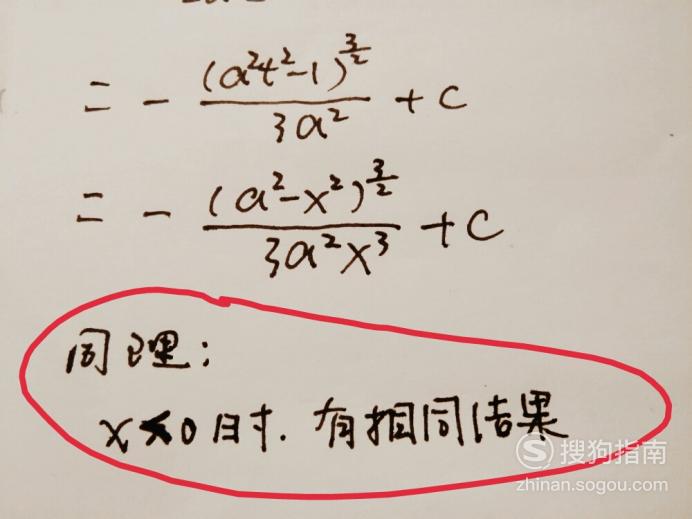 = - (a²t²-1)^(3/2) / 3a² + C
= - (a²-x²)^(3/2) / 3a²x³ + C
同理:
x<0时. 有相同结果
搜狗指南
zhinan.sogou.com